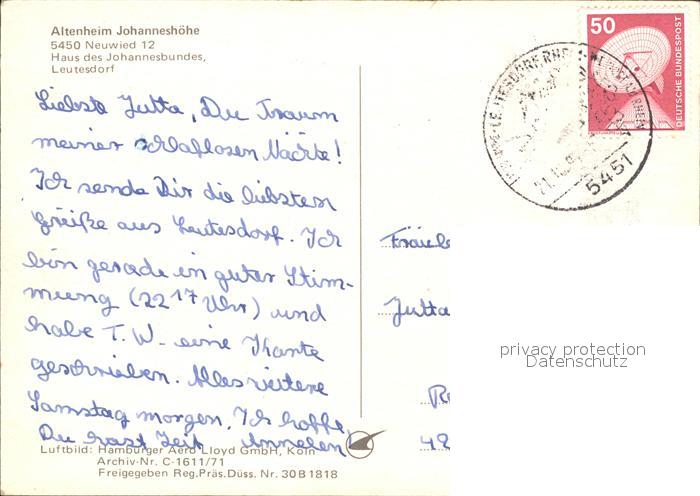 Altenheim Johanneshöhe
5450 Neuwied 12
Haus des Johannesbundes,
Leutesdorf
Liebste Jutta, Du Traum
meiner schlaflosen Nächte!
Ich sende Dir die liebsten
Grüße aus Leutesdorf. Ich
bin gerade in guter Stim-
mung (22 17 Uhr) und
habe T. W. eine Karte
geschrieben. Alles weitere
Samstag morgen. Ich hoffe,
Du hast Zeit
Luftbild: Hamburger Aero Lloyd GmbH, Köln
Archiv-Nr. C-1611/71
Freigegeben Reg.Präs.Düss. Nr. 30B1818
50
DEUTSCHE BUNDESPOST
5451
Jutta
privacy protection
Datenschutz